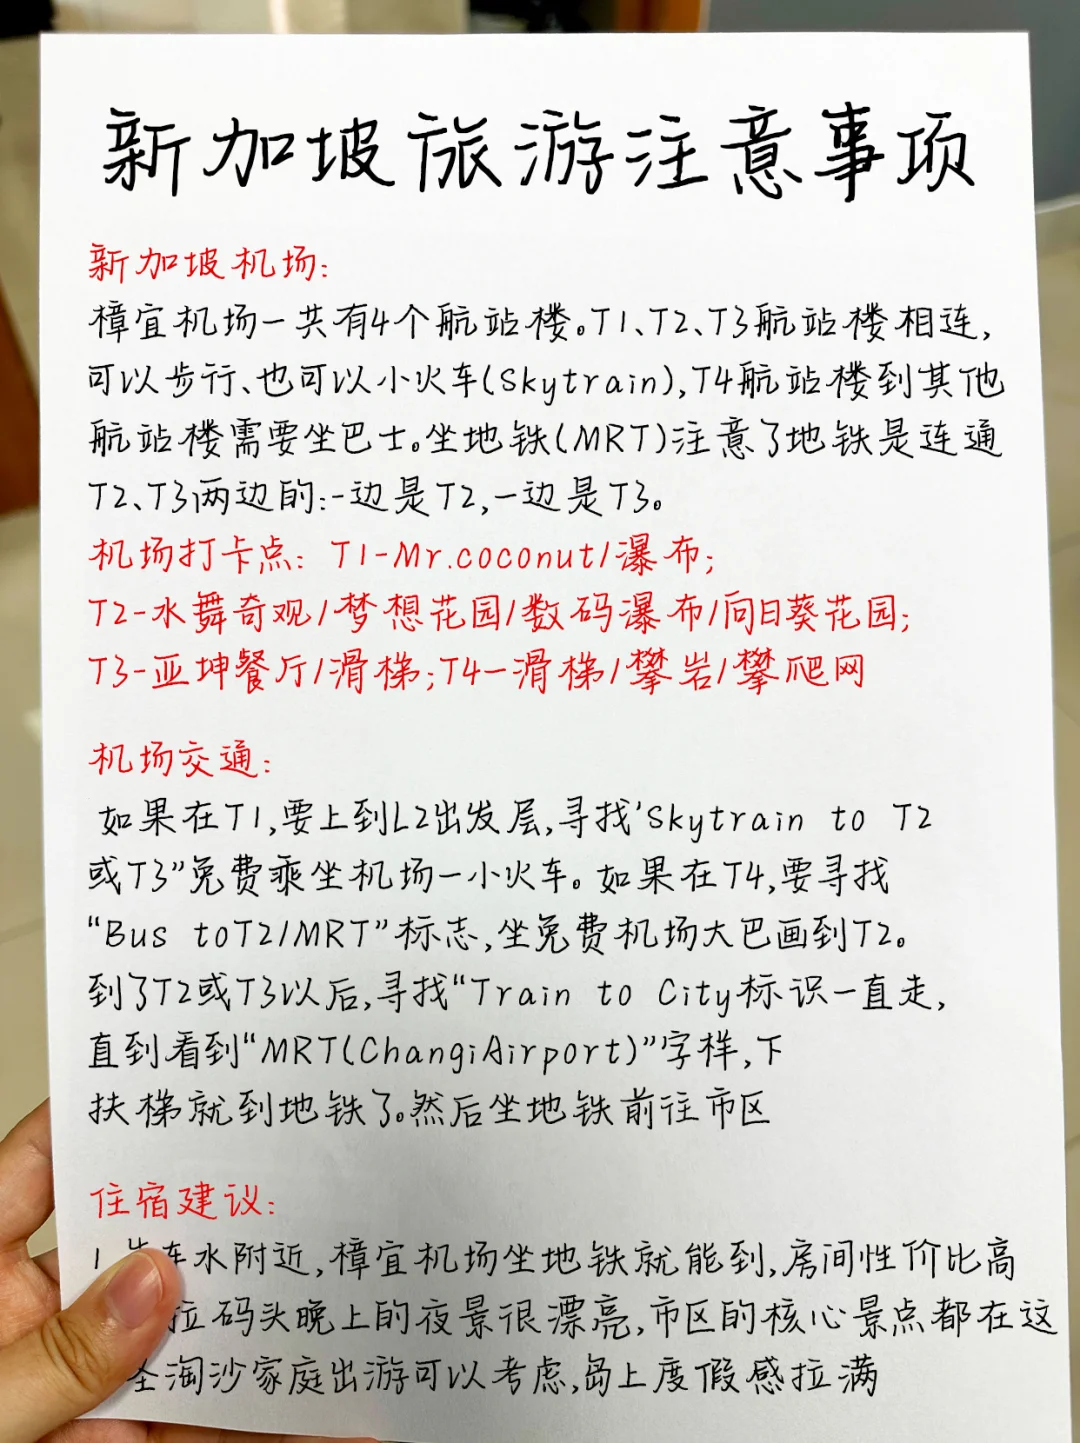 新加坡旅游注意事项
新加坡机场:
樟宜机场一共有4个航站楼。T1、T2、T3航站楼相连,
可以步行、也可以小火车(Skytrain),T4航站楼到其他
航站楼需要坐巴士。坐地铁(MRT)注意了地铁是连通
T2、T3两边的:一边是T2,一边是T3。
机场打卡点: T1-Mr.coconut/瀑布;
T2-水舞奇观/梦想花园/数码瀑布/向日葵花园;
T3-亚坤餐厅/滑梯;T4-滑梯/攀岩/攀爬网
机场交通:
如果在T1,要上到L2出发层,寻找'Skytrain to T2
或T3”免费乘坐机场一小火车。如果在T4,要寻找
“Bus toT2/MRT”标志,坐免费机场大巴画到T2。
到了T2或T3以后,寻找“Train to City标识一直走,
直到看到“MRT(ChangiAirport)”字样,下
扶梯就到地铁了。然后坐地铁前往市区
住宿建议:
1 水附近,樟宜机场坐地铁就能到,房间性价比高
拉码头晚上的夜景很漂亮,市区的核心景点都在这
圣淘沙家庭出游可以考虑,岛上度假感拉满